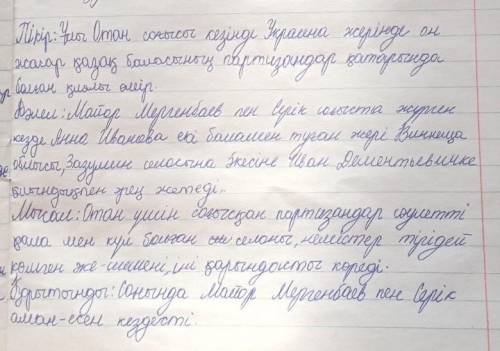 Пікір: Ұлы Отан соғысы кезінде Украина жерінде он
жасар қазақ баласының партизандар қатарында
болған қиын өмір.
Дәлел: Майор Мергенбаев пен Серік соғыста жүрген
кезде Анна Ивановна екі баламен туған жері Винница
облысы, Зазулин селосына әкесіне Иван Дементьевичке
қиындықпен әрең жетеді.
Мысал: Отан үшін соғысқан партизандар сәулетті
қала мен күл болған селоны, немістер тірідей
көмген әке-шешені, іні қарындасты көреді.
Қорытынды: Соңында Майор Мергенбаев пен Серік
аман-есен кездесті.